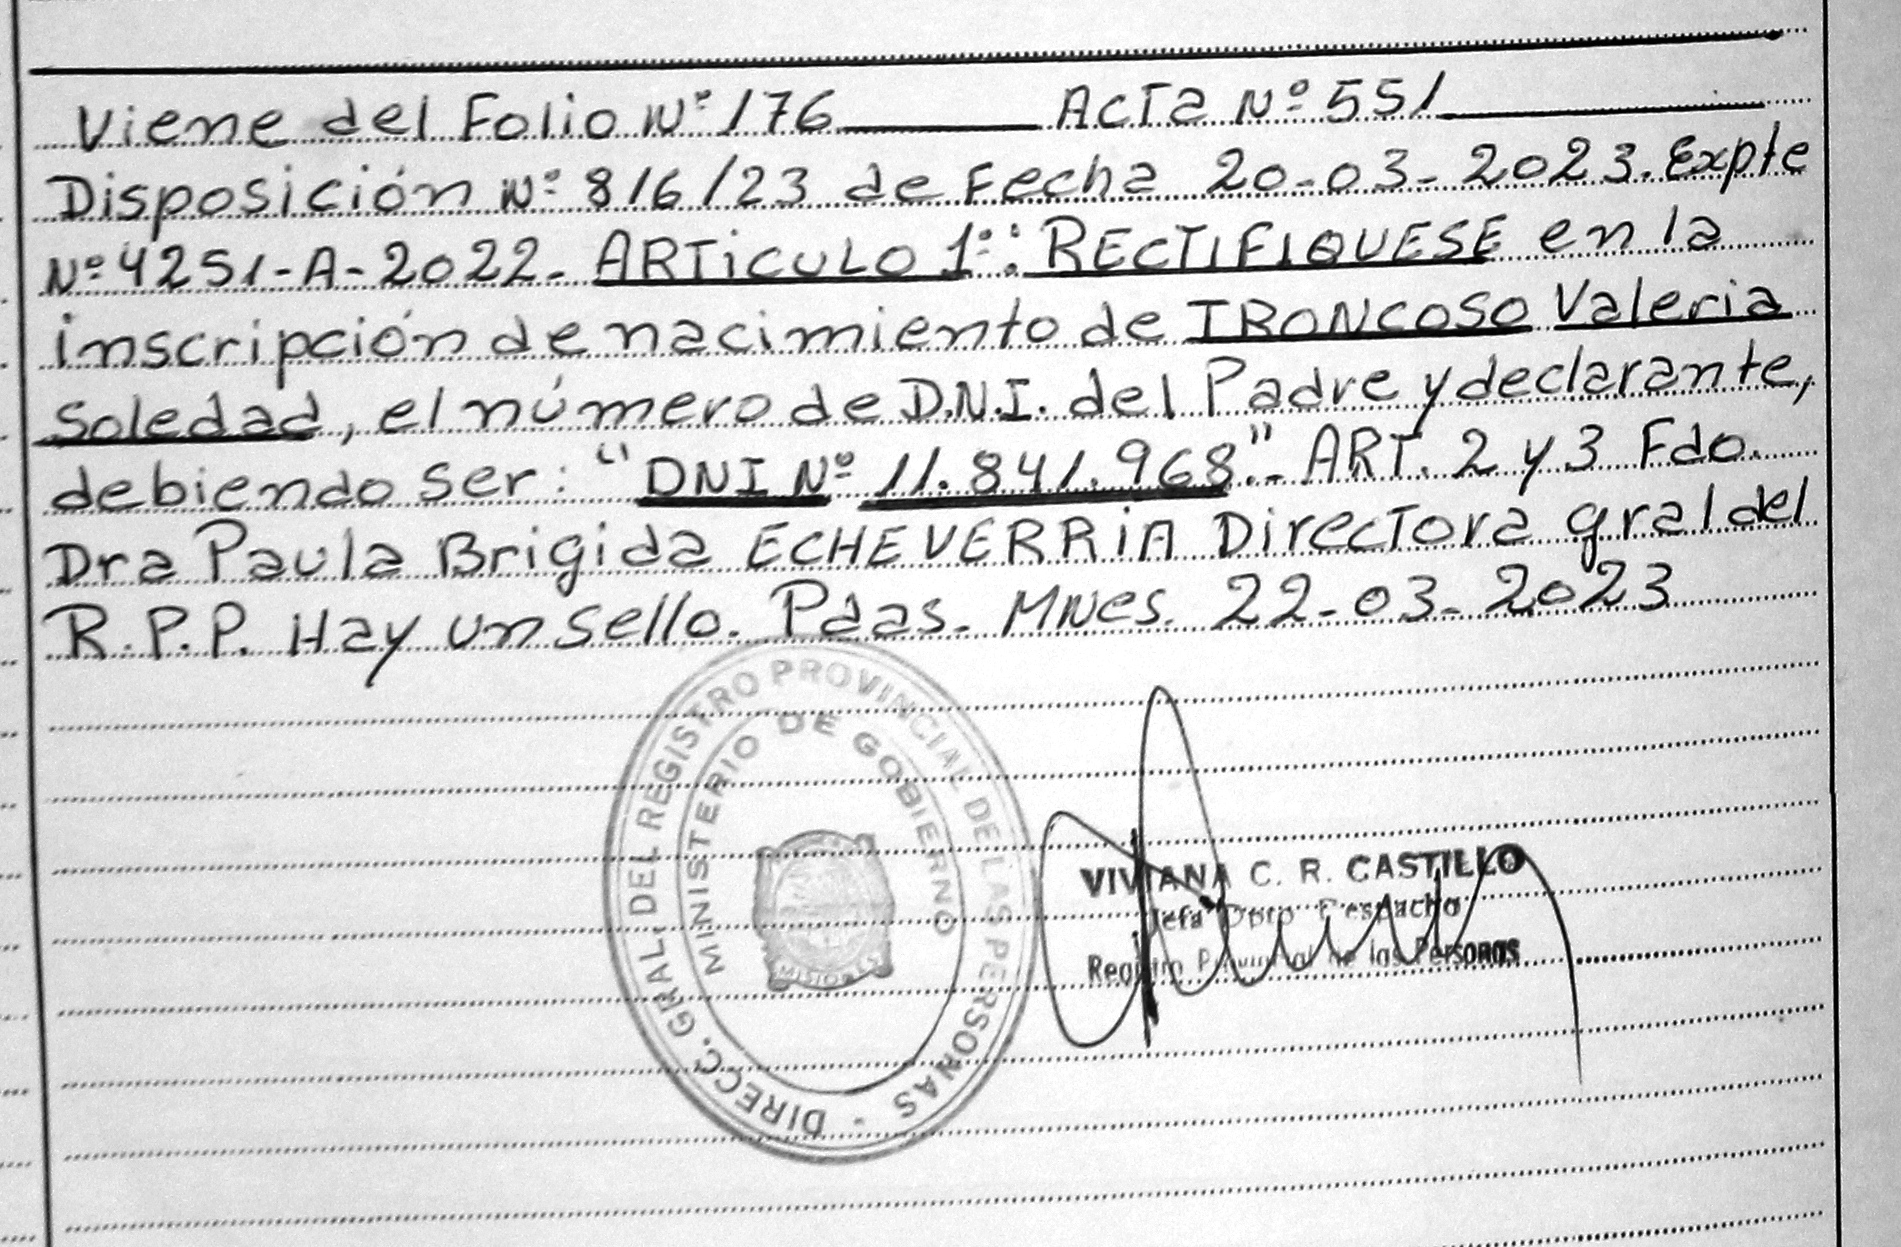 Viene del Folio Nº 176 ACTA Nº 551
Disposición Nº 816/23 de Fecha 20-03-2023. Expte
Nº 4251-A-2022- ARTiCULO 1º: RECTIFIQUESE en la
inscripción de nacimiento de TRONCOSO Valeria
Soledad, el número de D.N.I. del Padre y declarante,
debiendo ser: "DNI Nº 11.841.968".- ART. 2 y 3 Fdo.
Dra Paula Brigida ECHEVERRiA Directora gral del
R.P.P. Hay un sello. Pdas. MNes. 22-03-2023
DIRECC. GRAL. DEL REGISTRO PROVINCIAL DE LAS PERSONAS -
MINISTERIO DE GOBIERNO
MISIONES
VIVIANA C. R. CASTILLO
Jefa Dpto Despacho
Registro Provincial de las Personas